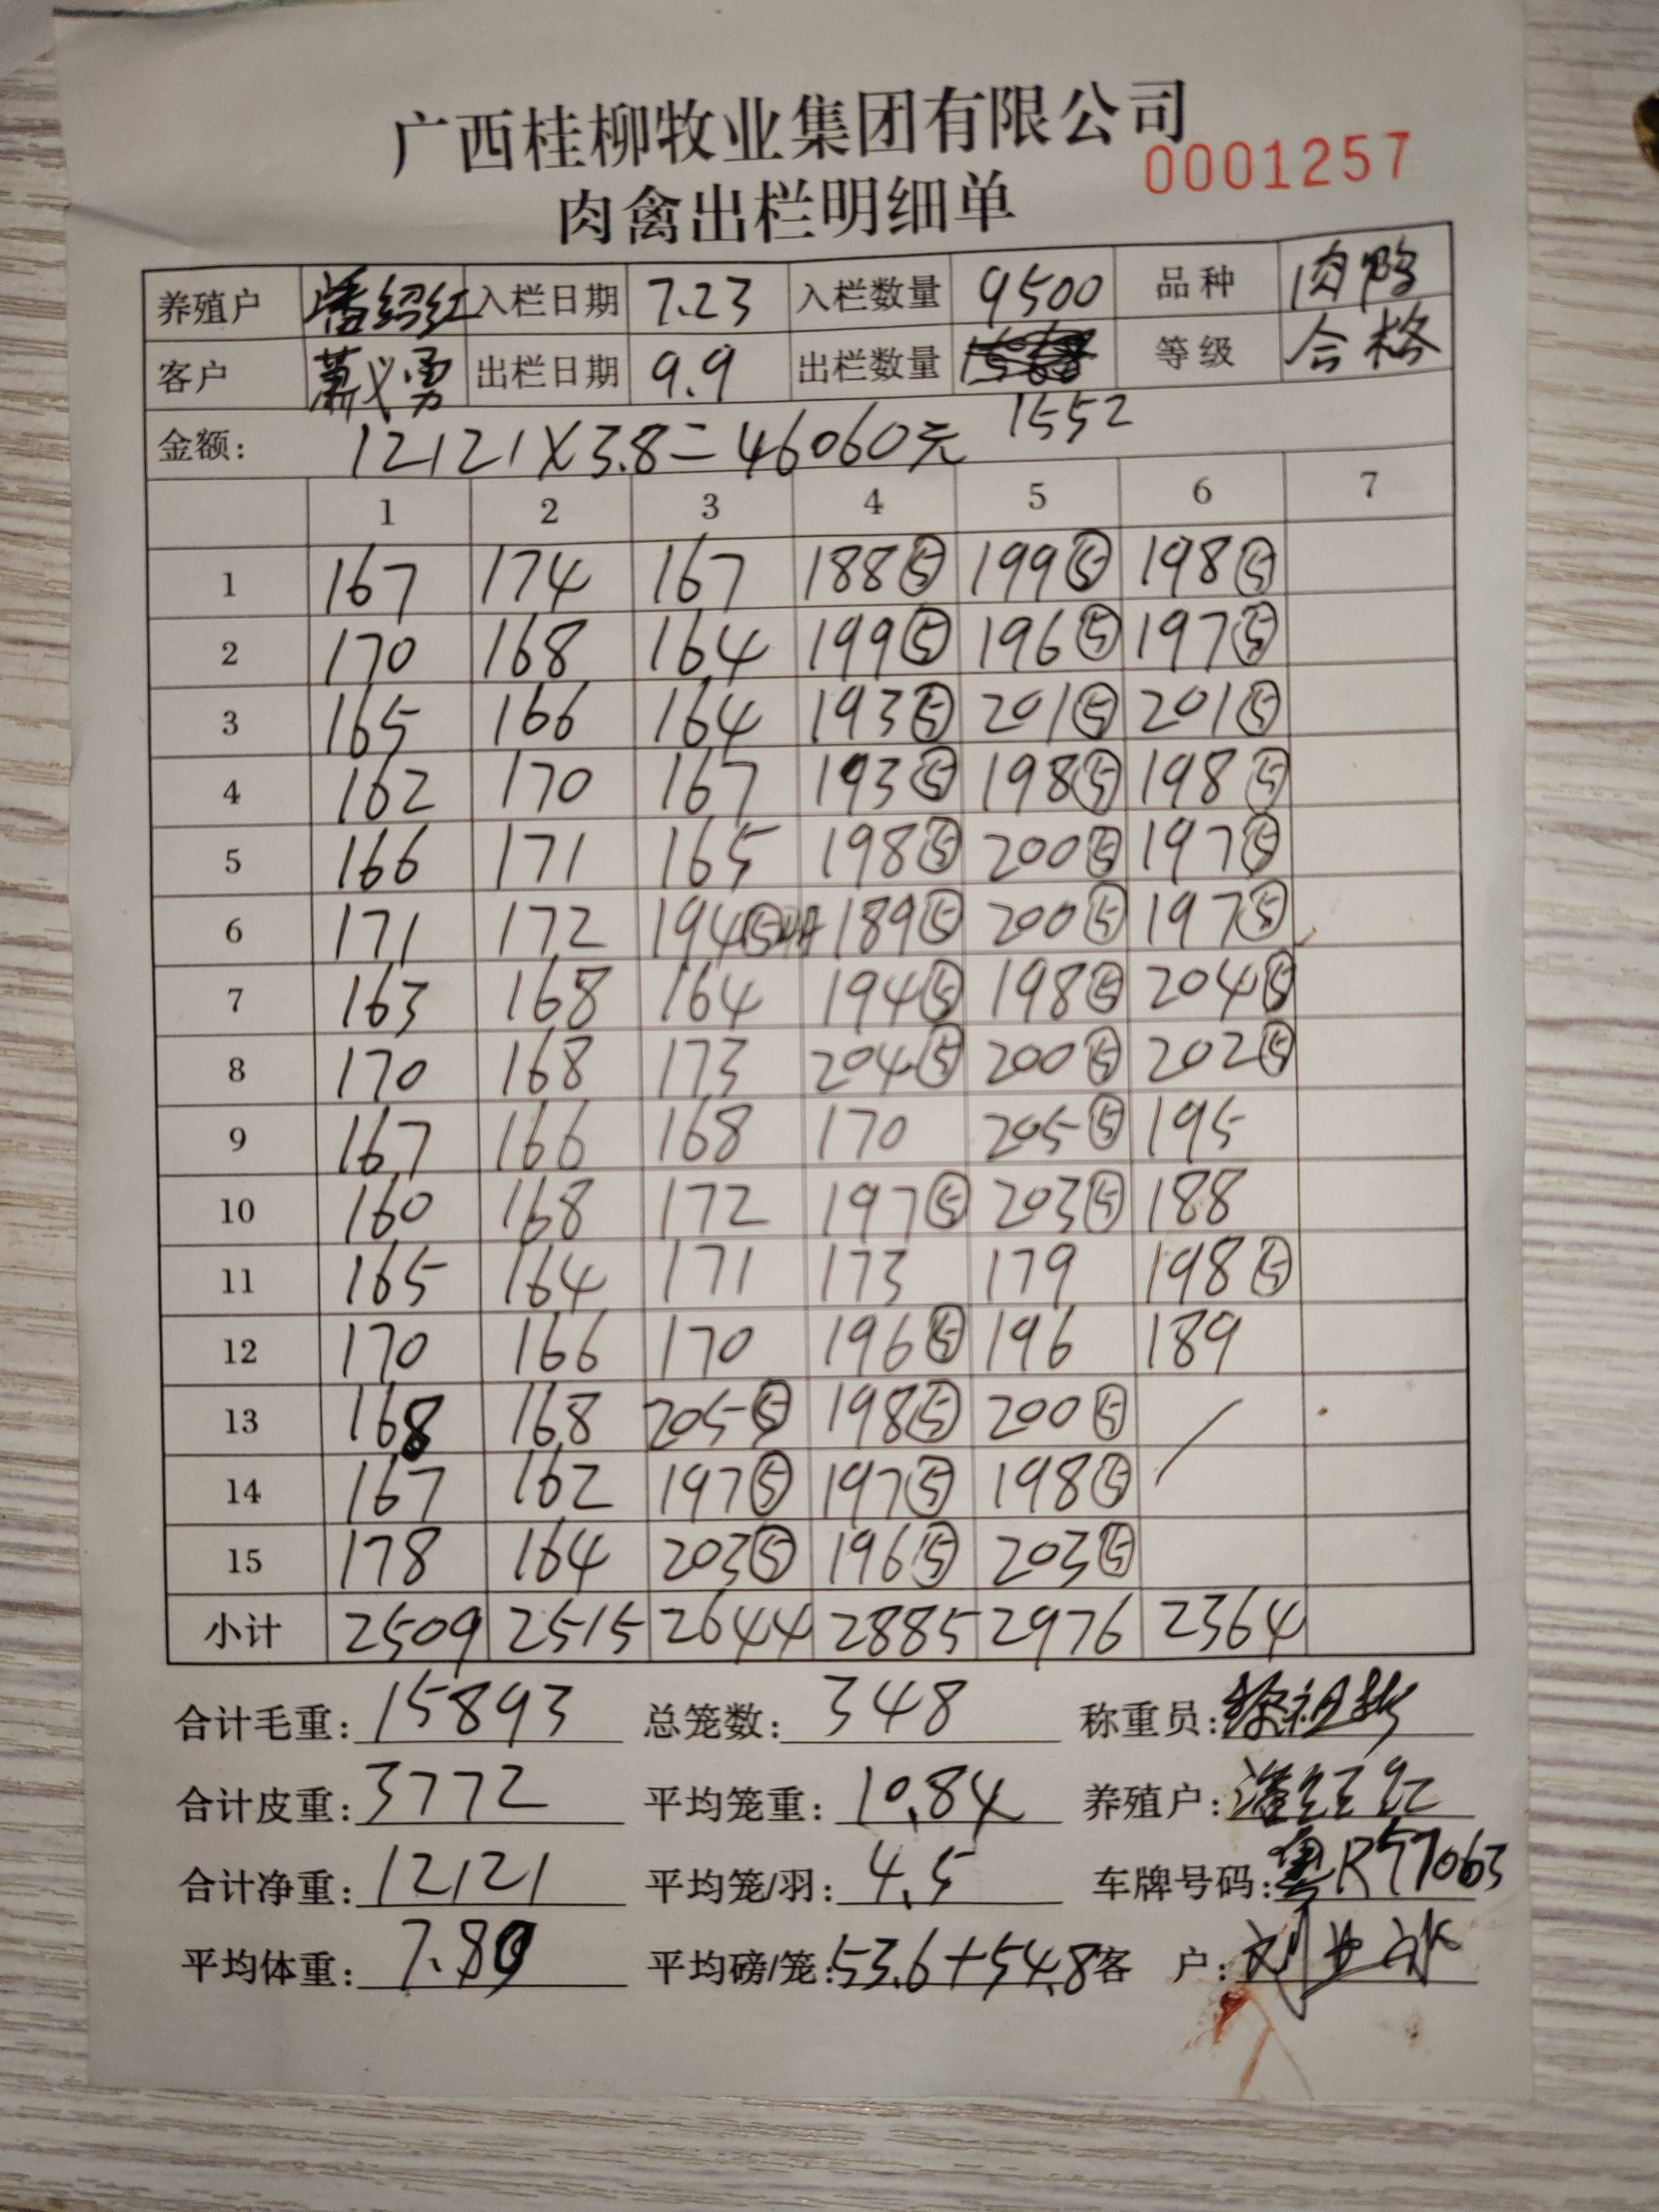 广西桂柳牧业集团有限公司
0001257
肉禽出栏明细单
养殖户 潘绍红 入栏日期 7.23 入栏数量 9500 品种 肉鸭
客户 萧义勇 出栏日期 9.9 出栏数量 等级 合格
1552
金额: 12121×3.8=46060元
1 2 3 4 5 6 7
1 167 174 167 188⑤ 199⑤ 198⑤
2 170 168 164 199⑤ 196⑤ 197⑤
3 165 166 164 193⑤ 201⑤ 201⑤
4 162 170 167 193⑤ 198⑤ 198⑤
5 166 171 165 198⑤ 200⑤ 197⑤
6 171 172 194⑤ 189⑤ 200⑤ 197⑤
7 163 168 164 194⑤ 198⑤ 204⑤
8 170 168 173 204⑤ 200⑤ 202⑤
9 167 166 168 170 205⑤ 195
10 160 168 172 197⑤ 203⑤ 188
11 165 164 171 173 179 198⑤
12 170 166 170 196⑤ 196 189
13 168 168 205⑤ 198⑤ 200⑤
14 167 162 197⑤ 197⑤ 198⑤
15 178 164 203⑤ 196⑤ 203⑤
小计 2509 2515 2644 2885 2976 2364
合计毛重: 15893 总笼数: 348 称重员:
合计皮重: 3772 平均笼重: 10.84 养殖户: 潘绍红
合计净重: 12121 平均笼/羽: 4.5 车牌号码: 粤R57063
平均体重: 7.80 平均磅/笼: 53.6+54.8 客 户: